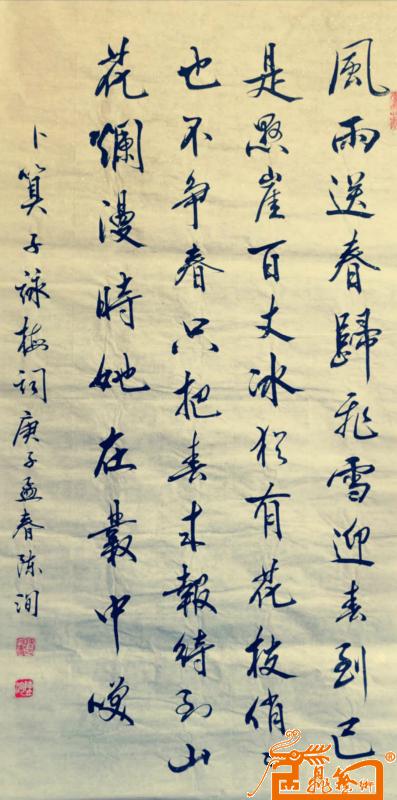 風雨送春歸飛雪迎春到已
是懸崖百丈冰犹有花枝俏々
也不争春只把春来報待到山
花爛漫時她在叢中咲
卜算子詠梅詞庚子孟春陈洵